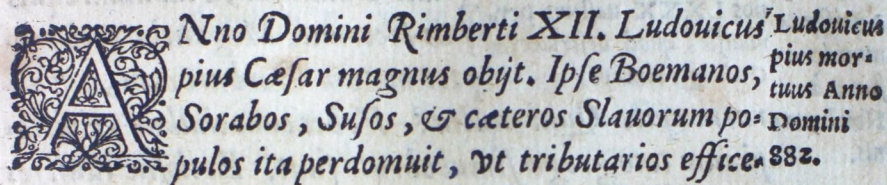 ANno Domini Rimberti XII. Ludouicus
pius Cæſar magnus obijt. Ipſe Boemanos,
Sorabos, Suſos, & cæteros Slauorum po-
pulos ita perdomuit, vt tributarios effice-
Ludouicus
pius mor-
tuus Anno
Domini
882.